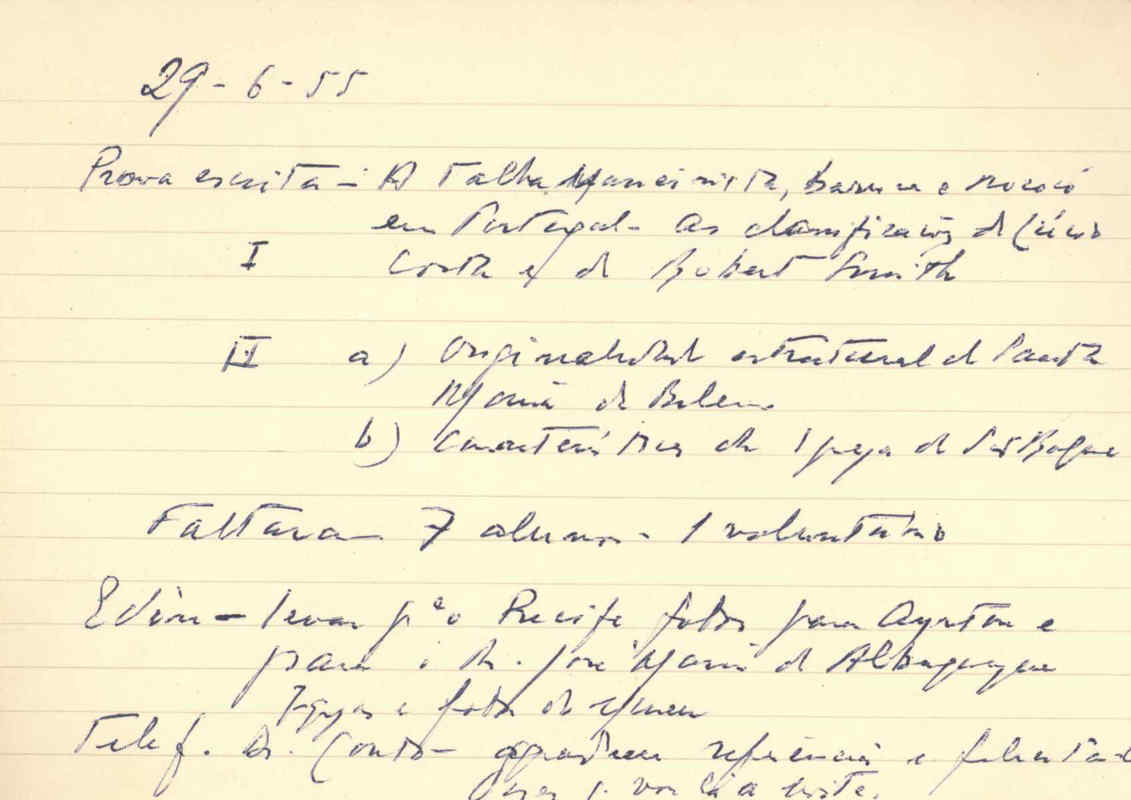 29-6-55
Prova escrita - A Talha Maneirista, barroca e rococó
em Portugal - as classificações de Lúcio
I Costa e de Robert Smith
II a) Originalidade estrutural de Santa
Maria de Belem
b) Características da Igreja de São Roque
Faltaram 7 alunos - 1 voluntário
Edson - levar pª o Recife fotos para Ayrton e
para o Dr. José Maria de Albuquerque
e fotos do
Telef. Dr. Couto - referência e